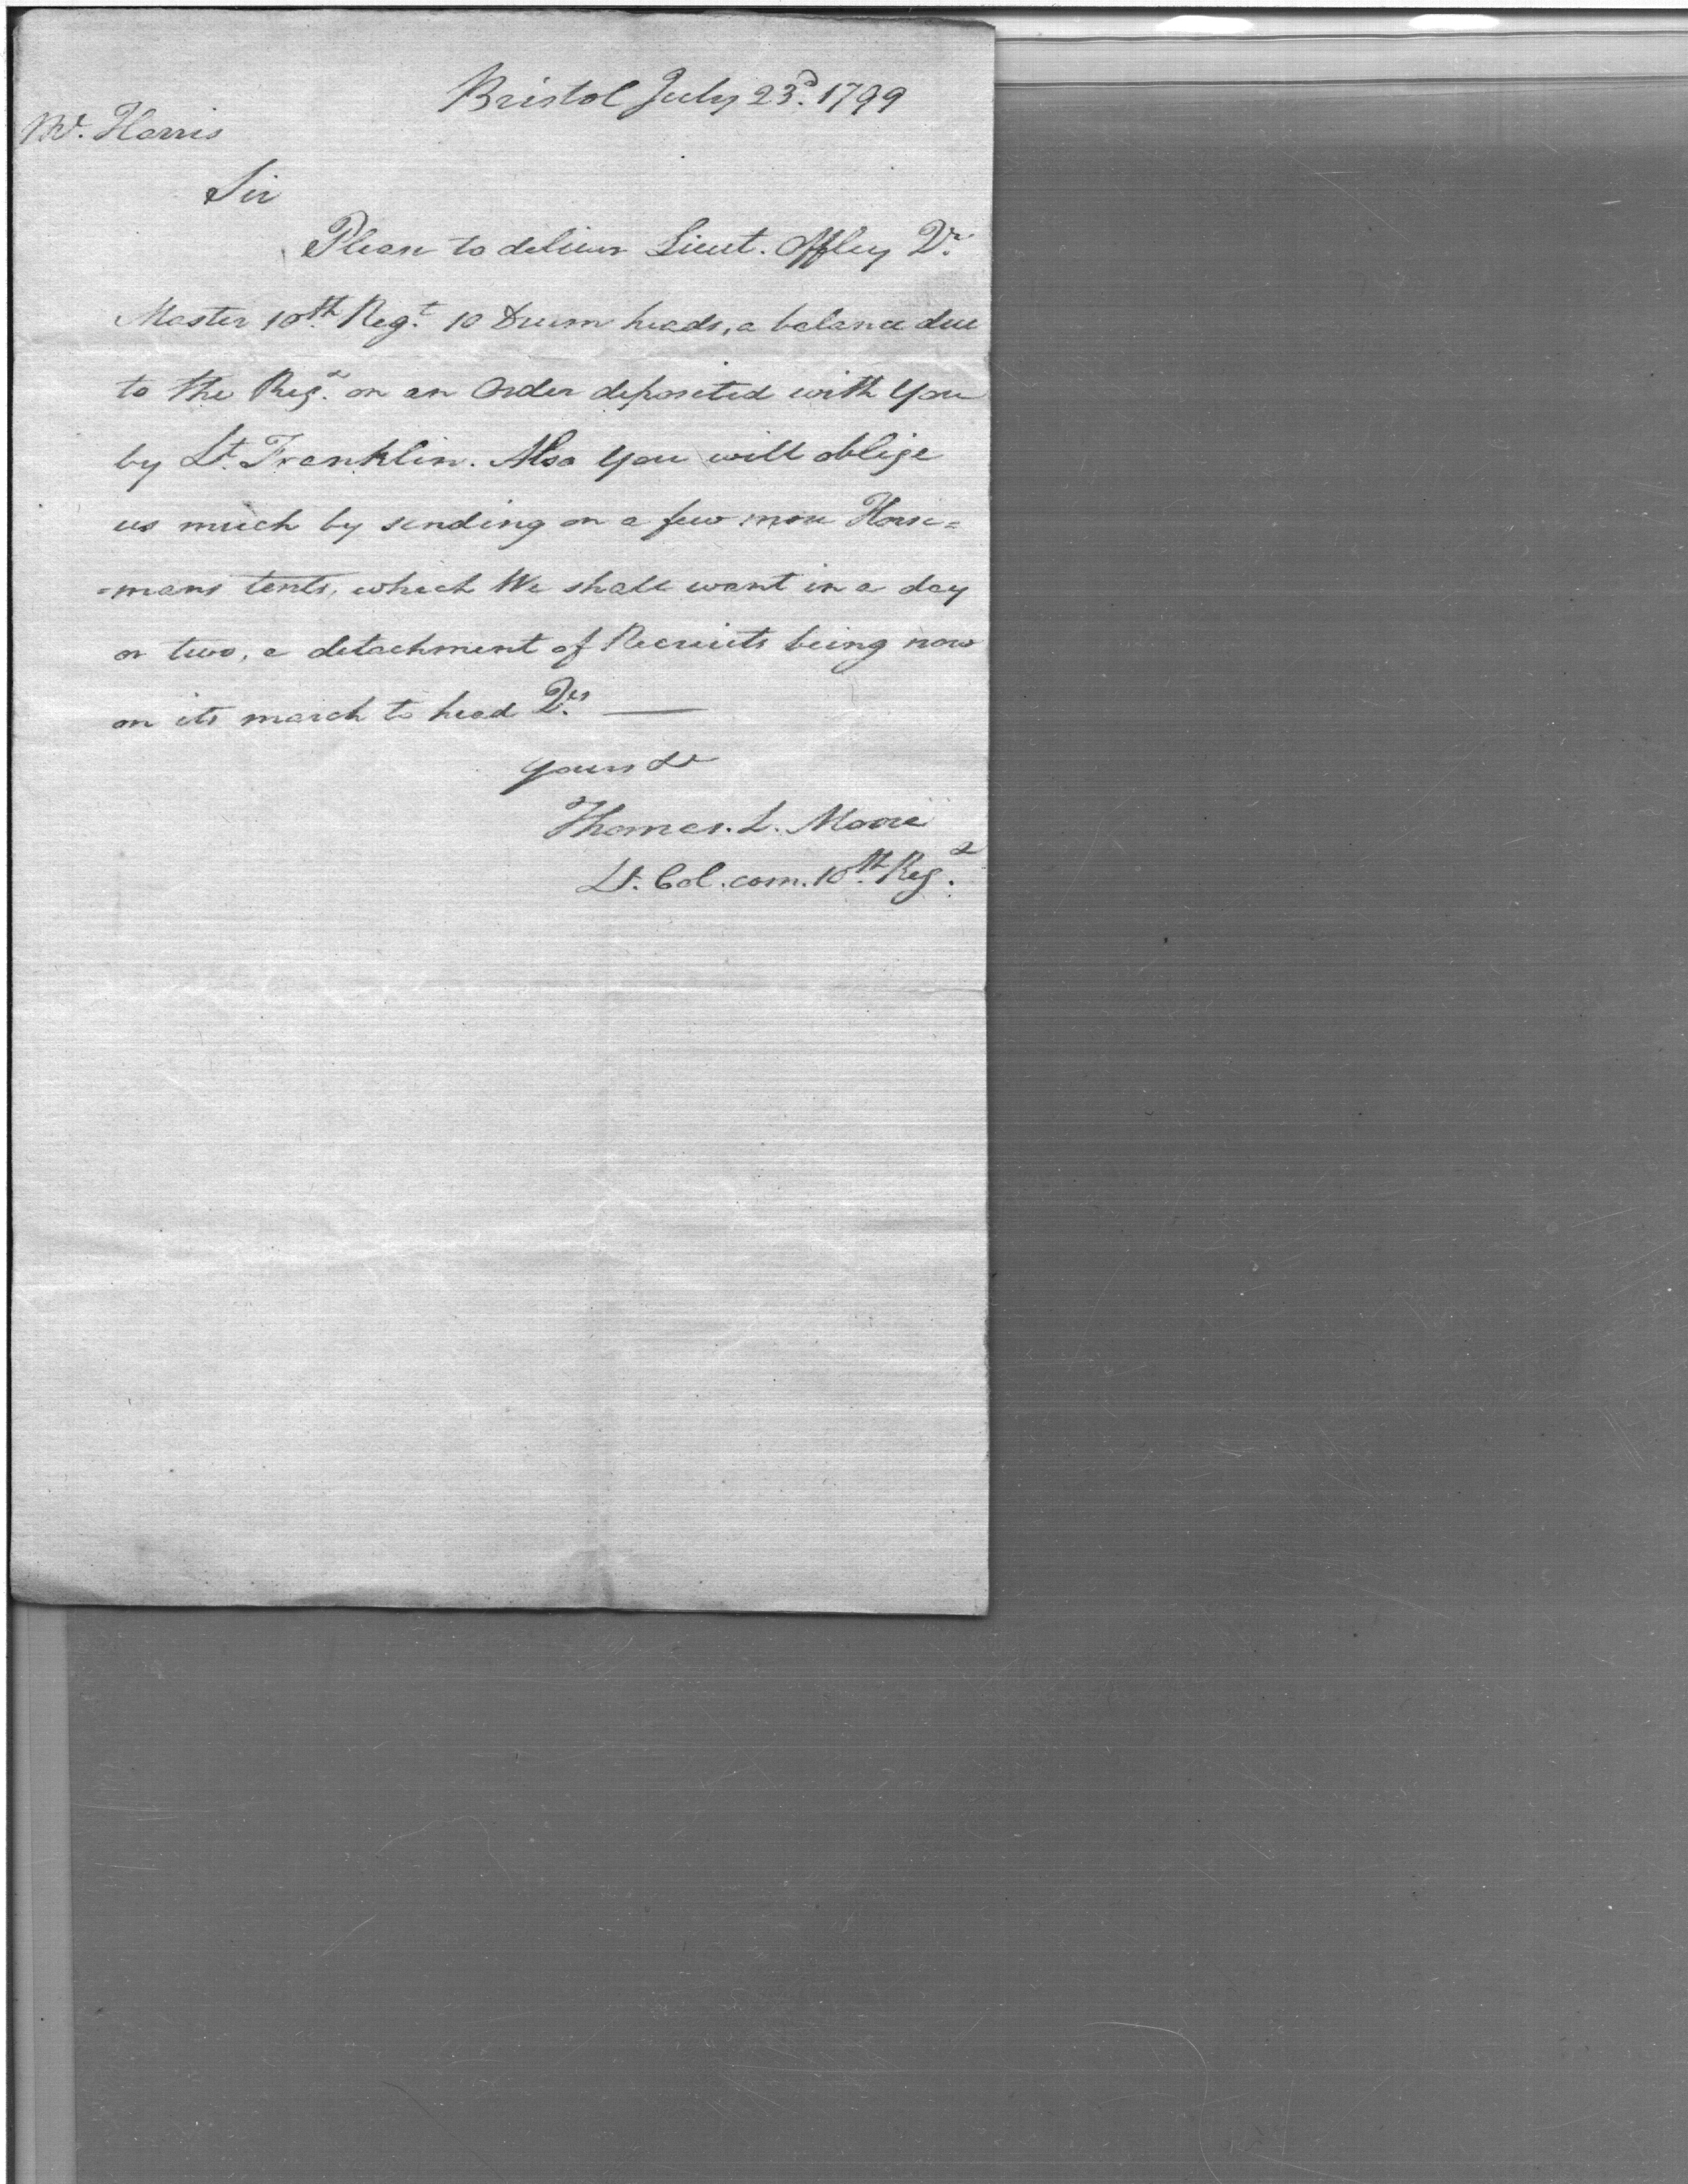 Bristol July 23d. 1799
Mr. Harris
Sir
Please to deliver Lieut. Offley Qr.
Master 10th. Regt. 10 Drum heads, a balance due
to the Regt. on an Order deposited with You
by Lt. Franklin. Also You will oblige
us much by sending on a few more Horse=
=mans tents, which We shall want in a day
or two, a detachment of Recruits being now
on its march to head Qrs. —
yours &c
Thomas. L. Moore
Lt. Col. com. 10th. Regt.